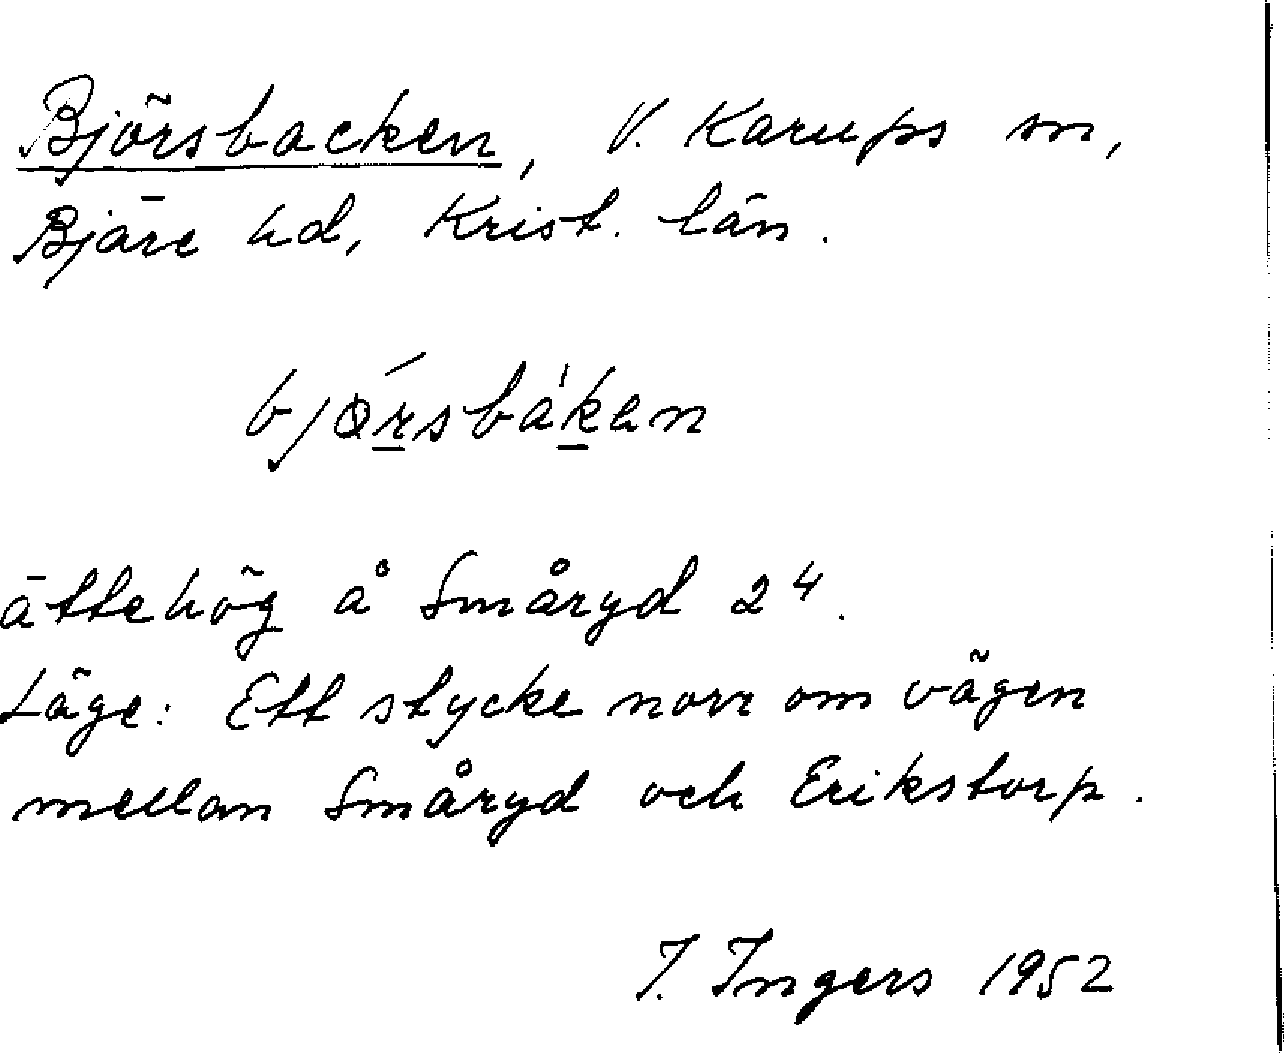 Björsbacken, V. Karups sn,
Bjäre hd, Krist. län.
bjǿrsbákan
ättehög å Småryd 2⁴.
Läge: Ett stycke norr om vägen
mellan Småryd och Erikstorp.
I. Ingers 1952